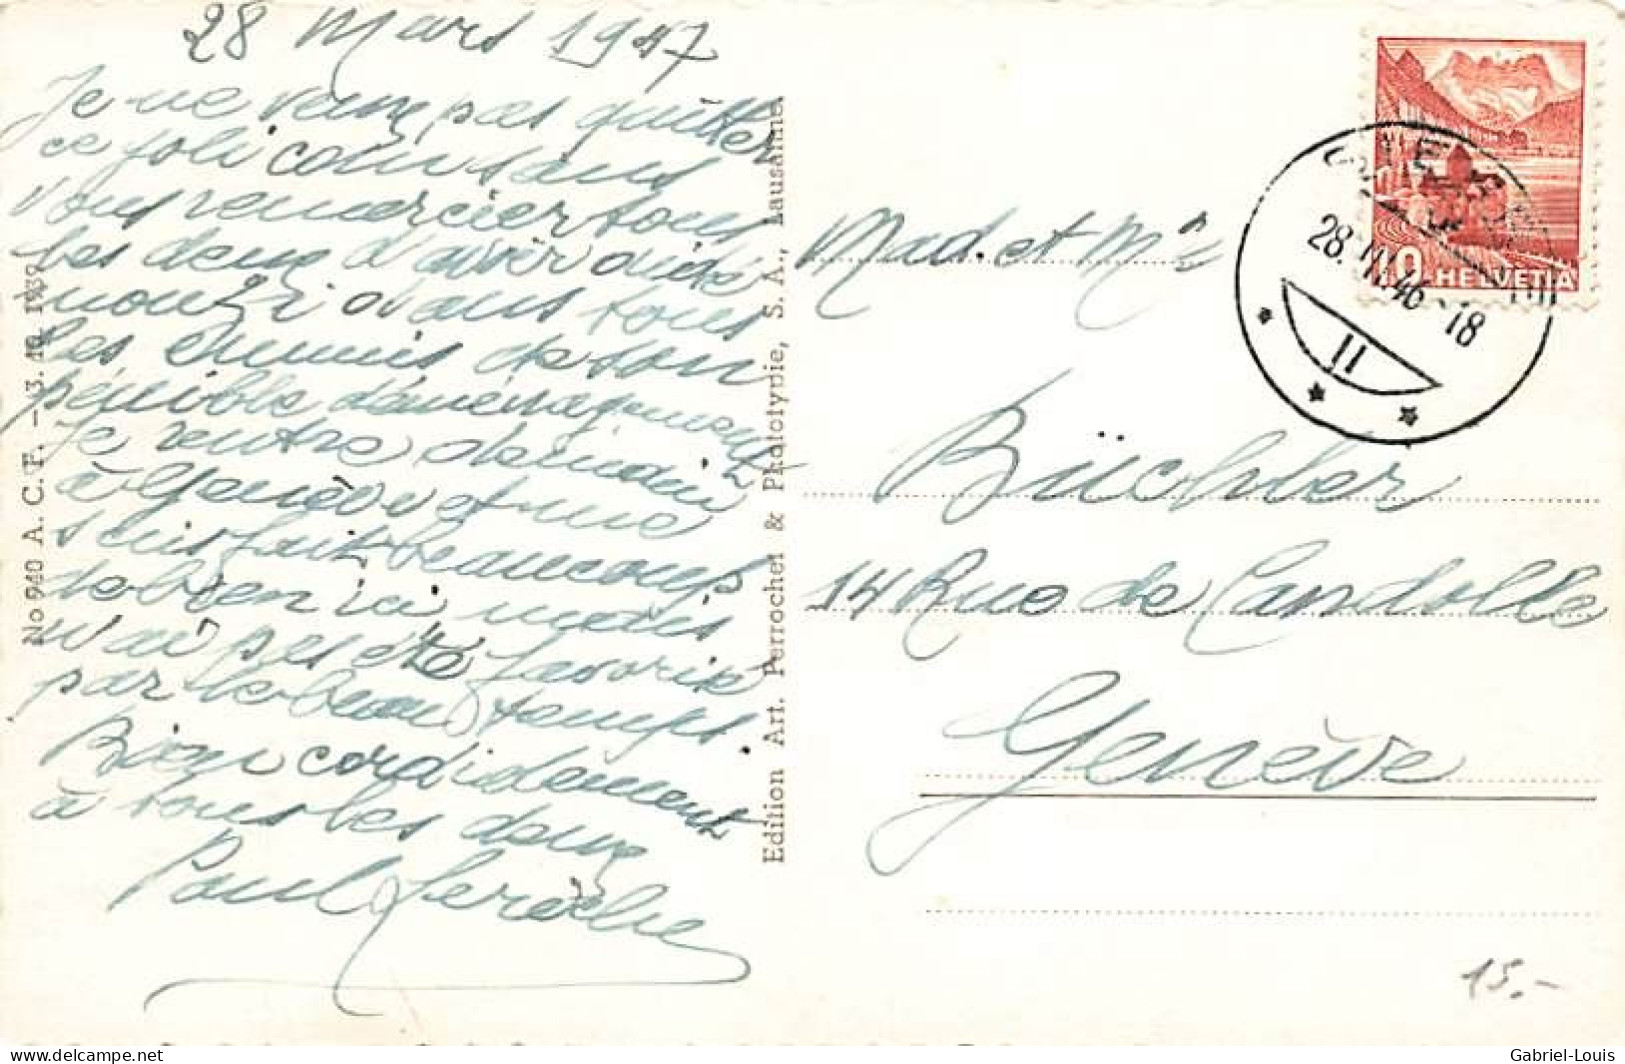 28 Mars 1947
Je ne veux pas quitter
ce joli coin sans
vous remercier tous
les deux d'avoir aidé
dans tous
les ennuis de son
pénible déménagement
Je rentre demain
à Genève et me
suis fait beaucoup
de bien ici mais
n'ai pas été favorisé
par le beau temps.
Bien cordialement
à tous les deux
Paul
No 940 A. C. F. - 3. 10. 1939
Edition Art. Perrochet & Phototypie, S. A., Lausanne.
HELVETIA
28. 46-18
II
Mad. et Mr
Büchler
14 Rue de Candolle
Genève
15.-
www.delcampe.net
Gabriel-Louis